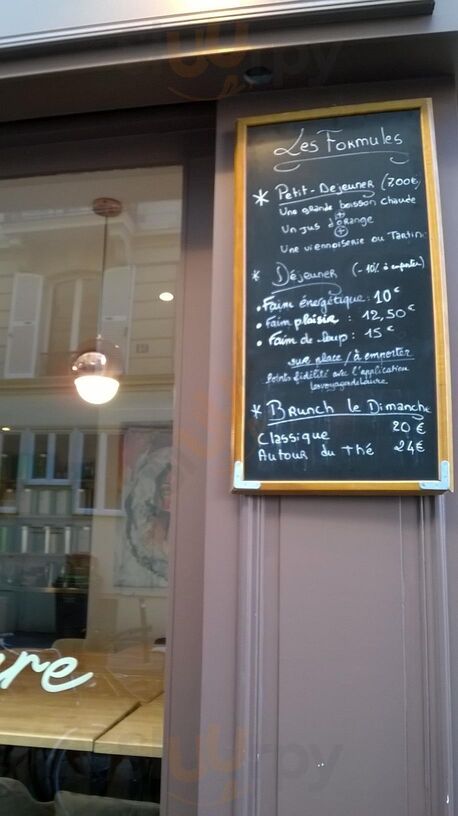 Les Formules
* Petit-Dejeuner (7,00€)
Une grande boisson chaude
+
Un jus d'orange
+
Une viennoiserie ou Tartine
* Déjeuner (-10% à emporter)
• Faim énergétique : 10€
• Faim plaisir : 12,50€
• Faim de loup : 15€
sur place / à emporter
Points fidélité avec l'application
lesvoyagesdelaure
* Brunch le Dimanche
Classique 20€
Autour du thé 24€
ure